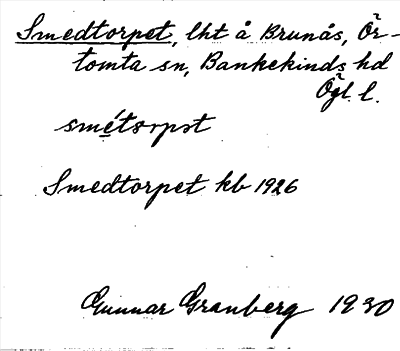 Smedtorpet, lht å Brunås, Ör-
tomta sn, Bankekinds hd
Ögl. l.
smétorpət
Smedtorpet kb 1926
Gunnar Granberg 1930